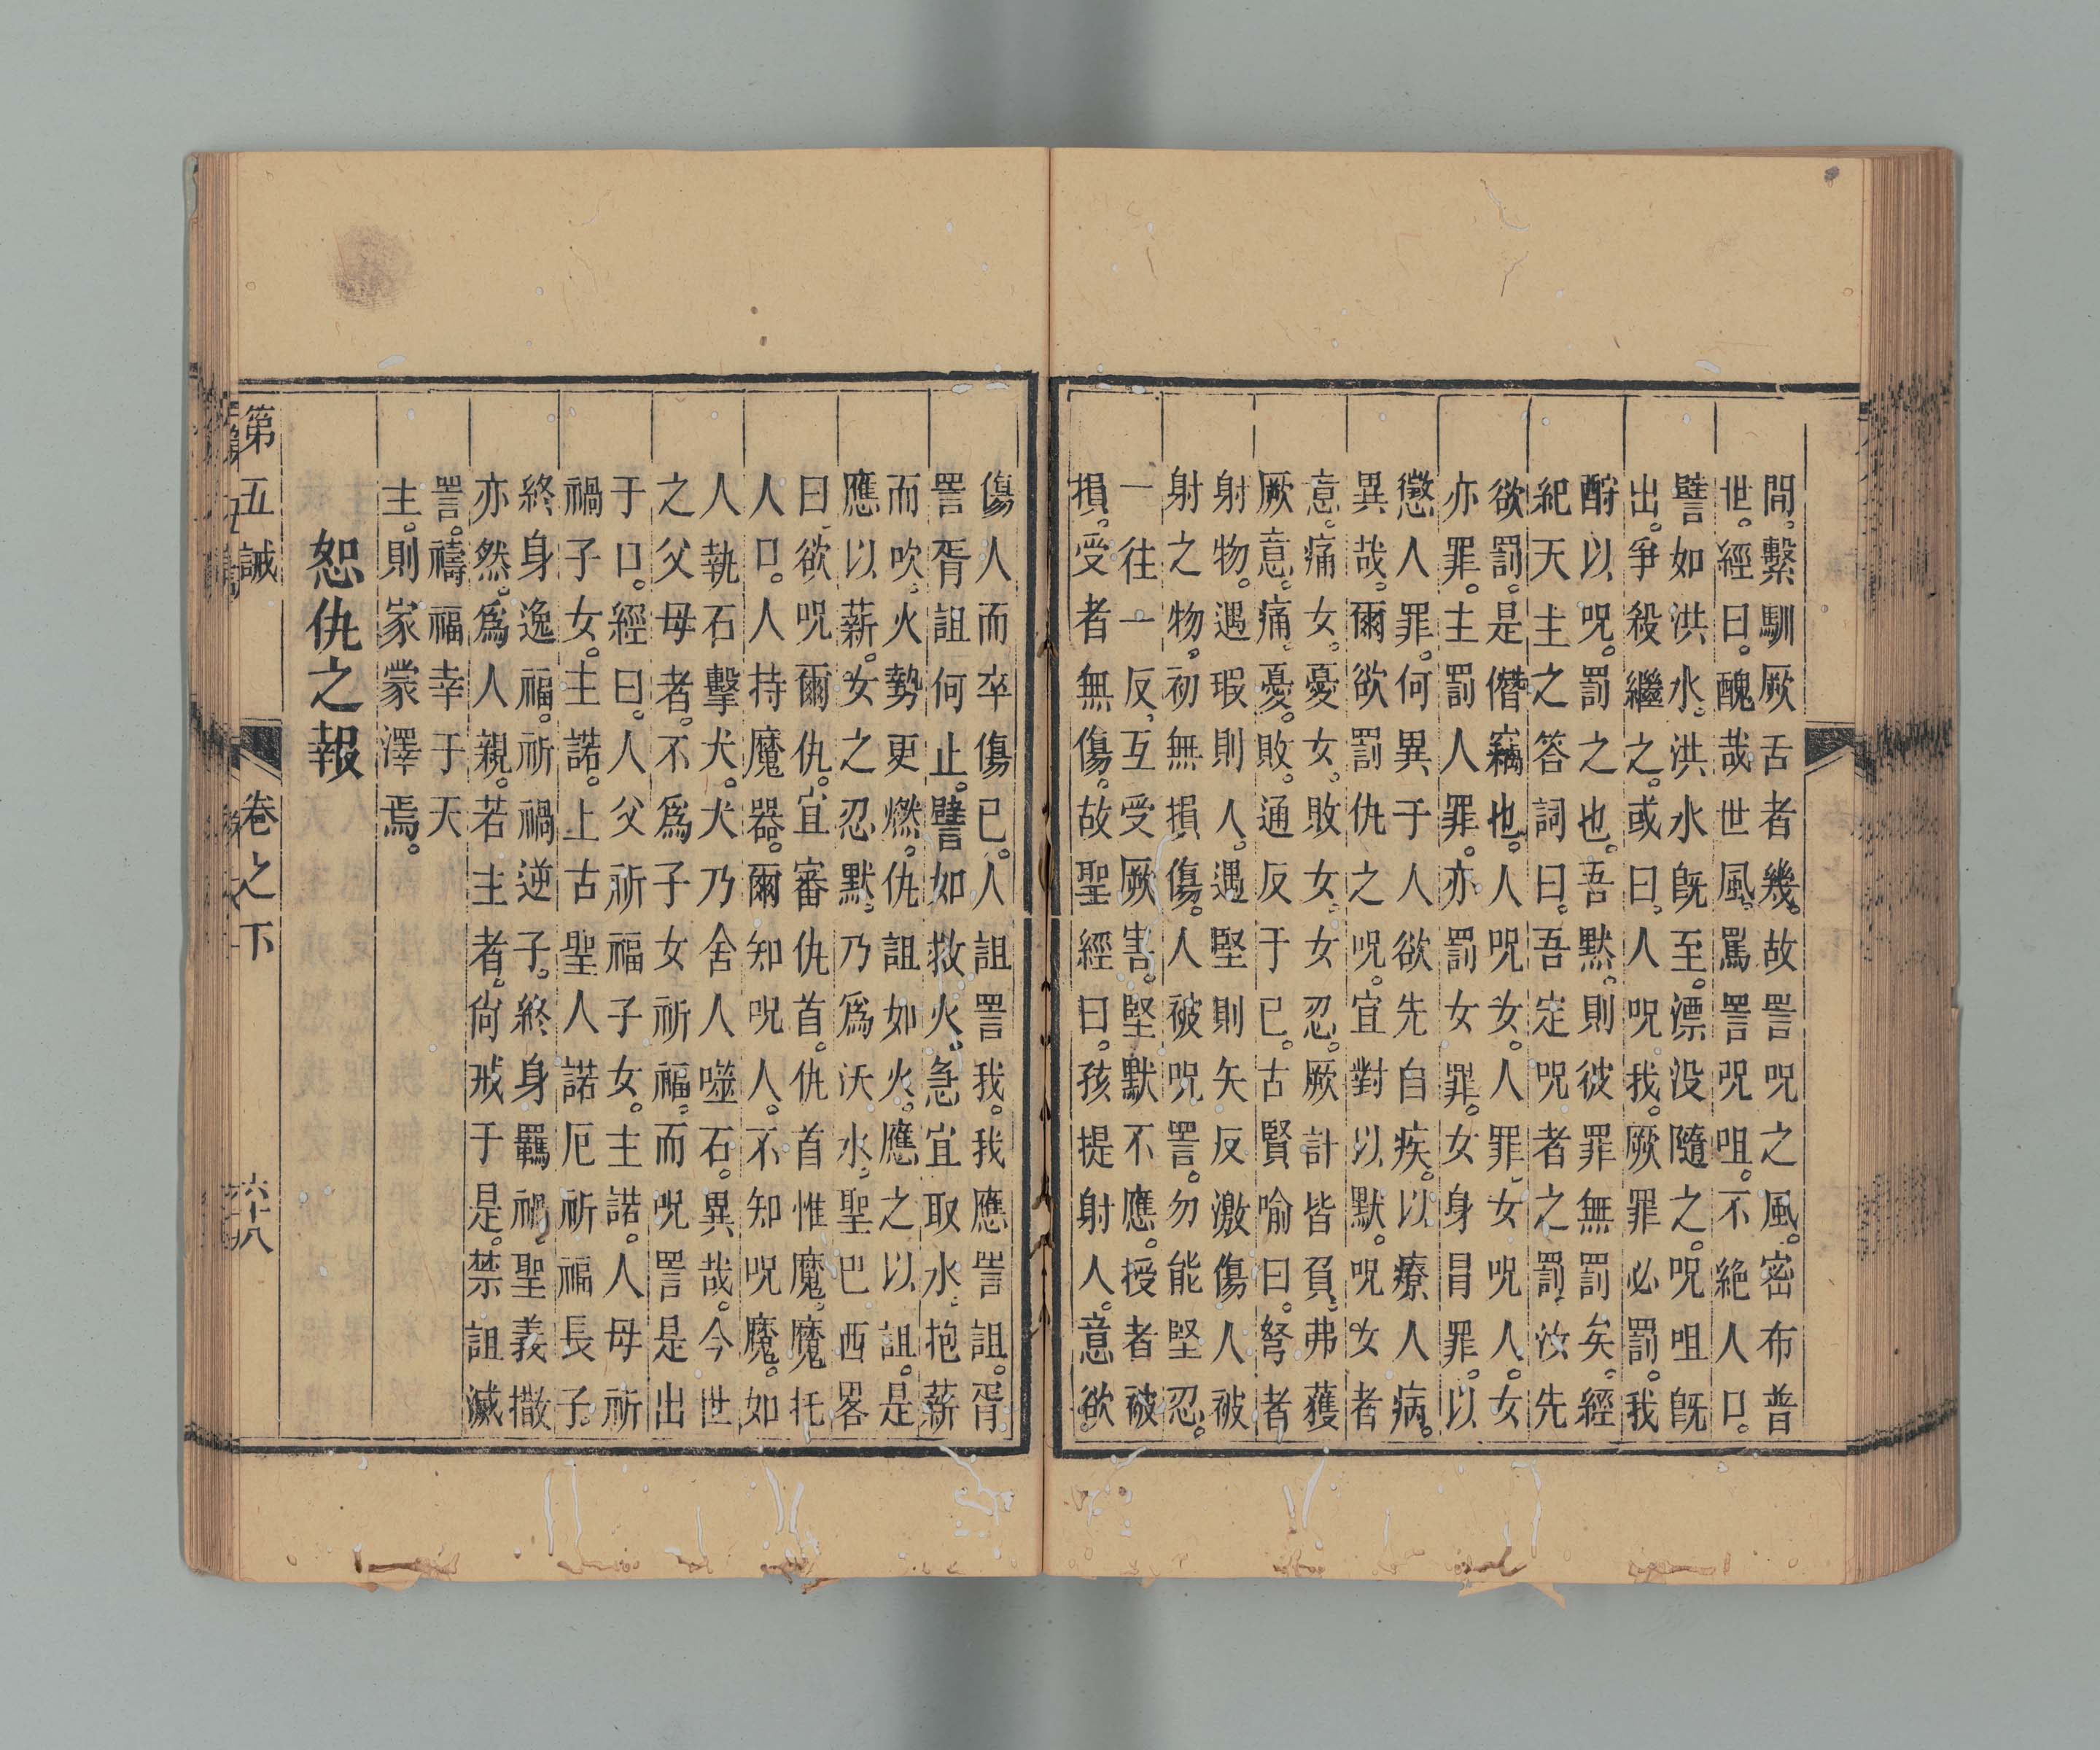 間。繫馴厥舌者幾。故詈呪之風。密布普
世。經曰。醜哉世風。罵詈呪咀。不絶人口。
譬如洪水。洪水旣至。漂没隨之。呪咀旣
出。爭殺繼之。或曰。人呪我。厥罪必罰。我
酧以呪。罰之也。吾黙。則彼罪無罰矣。經
紀天主之答詞曰。吾定呪者之罰。汝先
欲罰。是僭竊也。人呪女。人罪。女呪人。女
亦罪。主罰人罪。亦罰女罪。女身冒罪。以
懲人罪。何異于人欲先自疾。以療人病。
異哉。爾欲罰仇之呪。宜對以默。呪女者
意。痛女。憂女。敗女。女忍。厥計皆負。弗獲
厥意。痛。憂。敗。通反于已。古賢喻曰。弩者
射物。遇瑕則人。遇堅則矢反激傷人。被
射之物。初無損傷。人被呪詈。勿能堅忍。
一往一反。互受厥害。堅默不應。授者被
損。受者無傷。故聖經曰。孩提射人。意欲
傷人而卒傷已。人詛詈我。我應詈詛。胥
詈胥詛何止。譬如救火。急宜取水。抱薪
而吹。火勢更燃。仇詛如火。應之以詛。是
應以薪。女之忍默。乃爲沃水。聖巴西畧
曰。欲呪爾仇。宜審仇首。仇首惟魔。魔托
人口。人持魔器。爾知呪人。不知呪魔。如
人執石擊犬。犬乃舍人噬石。異哉。今世
之父母者。不爲子女祈福。而呪詈是出
于口。經曰。人父祈福子女。主諾。人母祈
禍子女。主諾。上古聖人諾厄祈福長子
終身逸福。祈禍逆子。終身羈禍。聖義撒
亦然。爲人親。若主者。尙戒于是。禁詛滅
詈。禱福幸于天
主。則家蒙澤焉。
恕仇之報
第五誡 卷之下 六十八